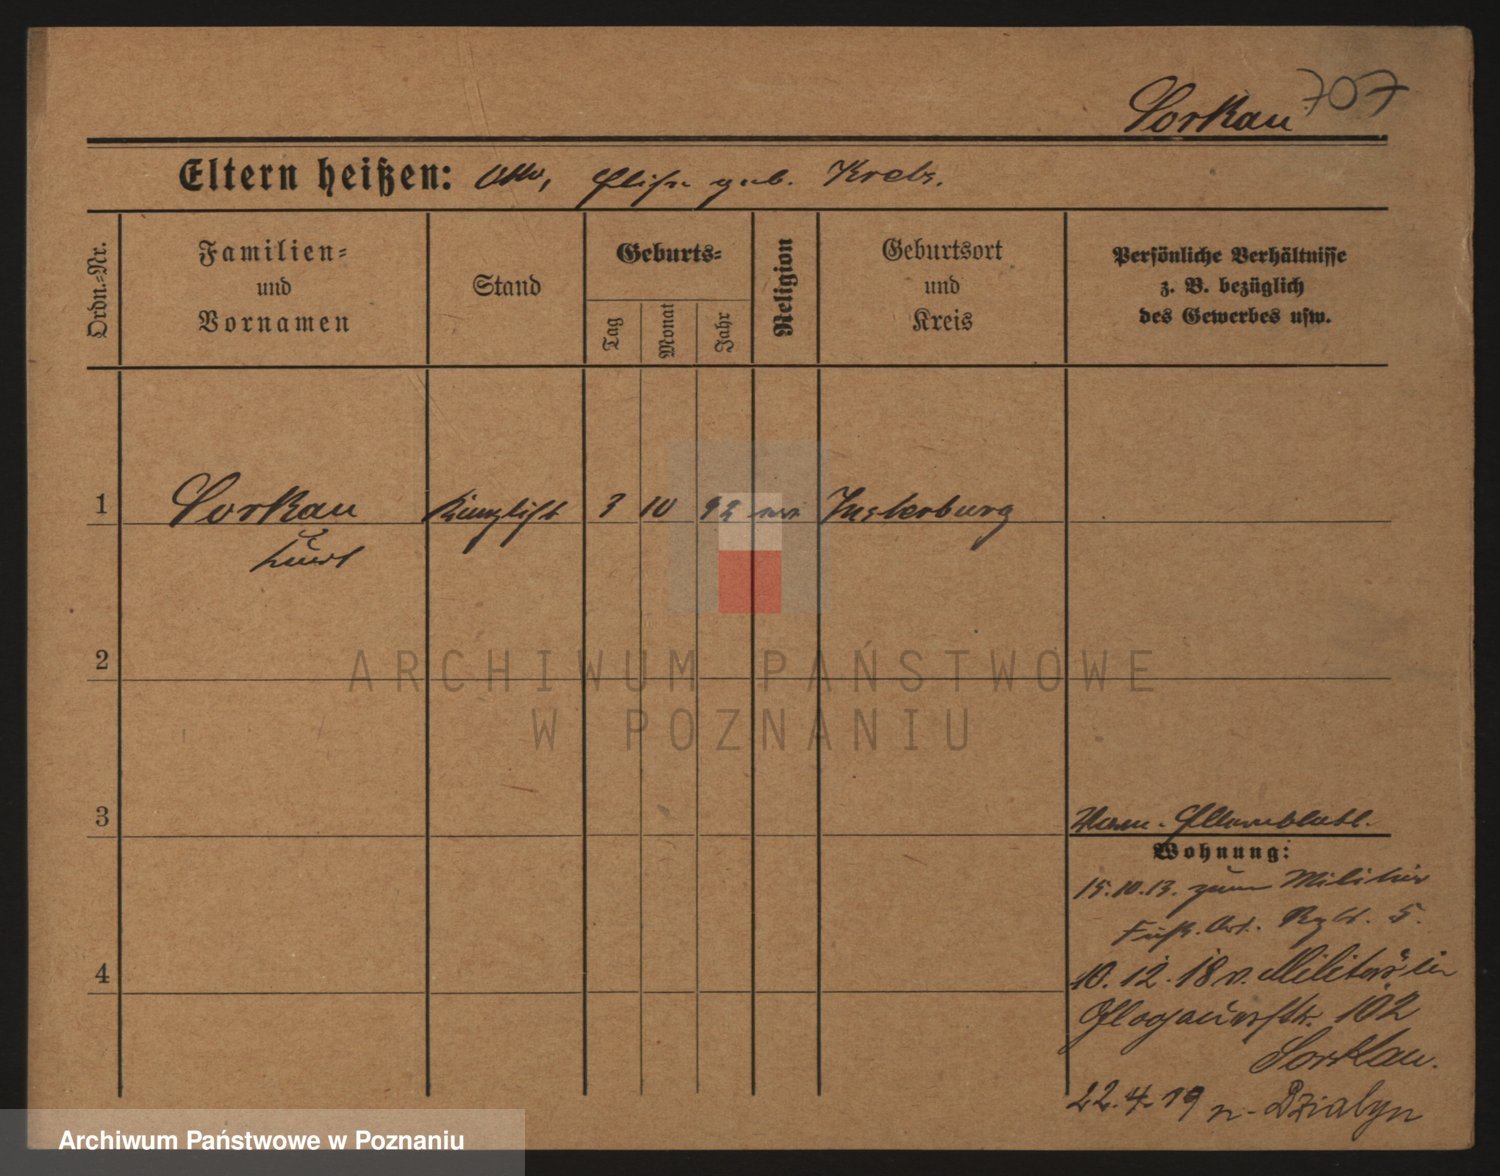 Sorkau 707
Eltern heißen: Otto, Elise geb. Krebs.
Ordn.-Nr.
Familien-
und
Vornamen
Stand
Geburts-
Tag
Monat
Jahr
Religion
Geburtsort
und
Kreis
Persönliche Verhältnisse
z. B. bezüglich
des Gewerbes usw.
1
Sorkau
Kurt
Kanzlist
3
10
92
Insterburg
2
ARCHIWUM PAŃSTWOWE
W POZNANIU
3
Elternblatt.
Wohnung:
15.10.13. zum Militär
Fuß. Art. Rgt. 5.
4
10.12.18 v. Militär in
Glogauerstr. 102
Sorkau.
22.4.19 n. Dzialyn
Archiwum Państwowe w Poznaniu